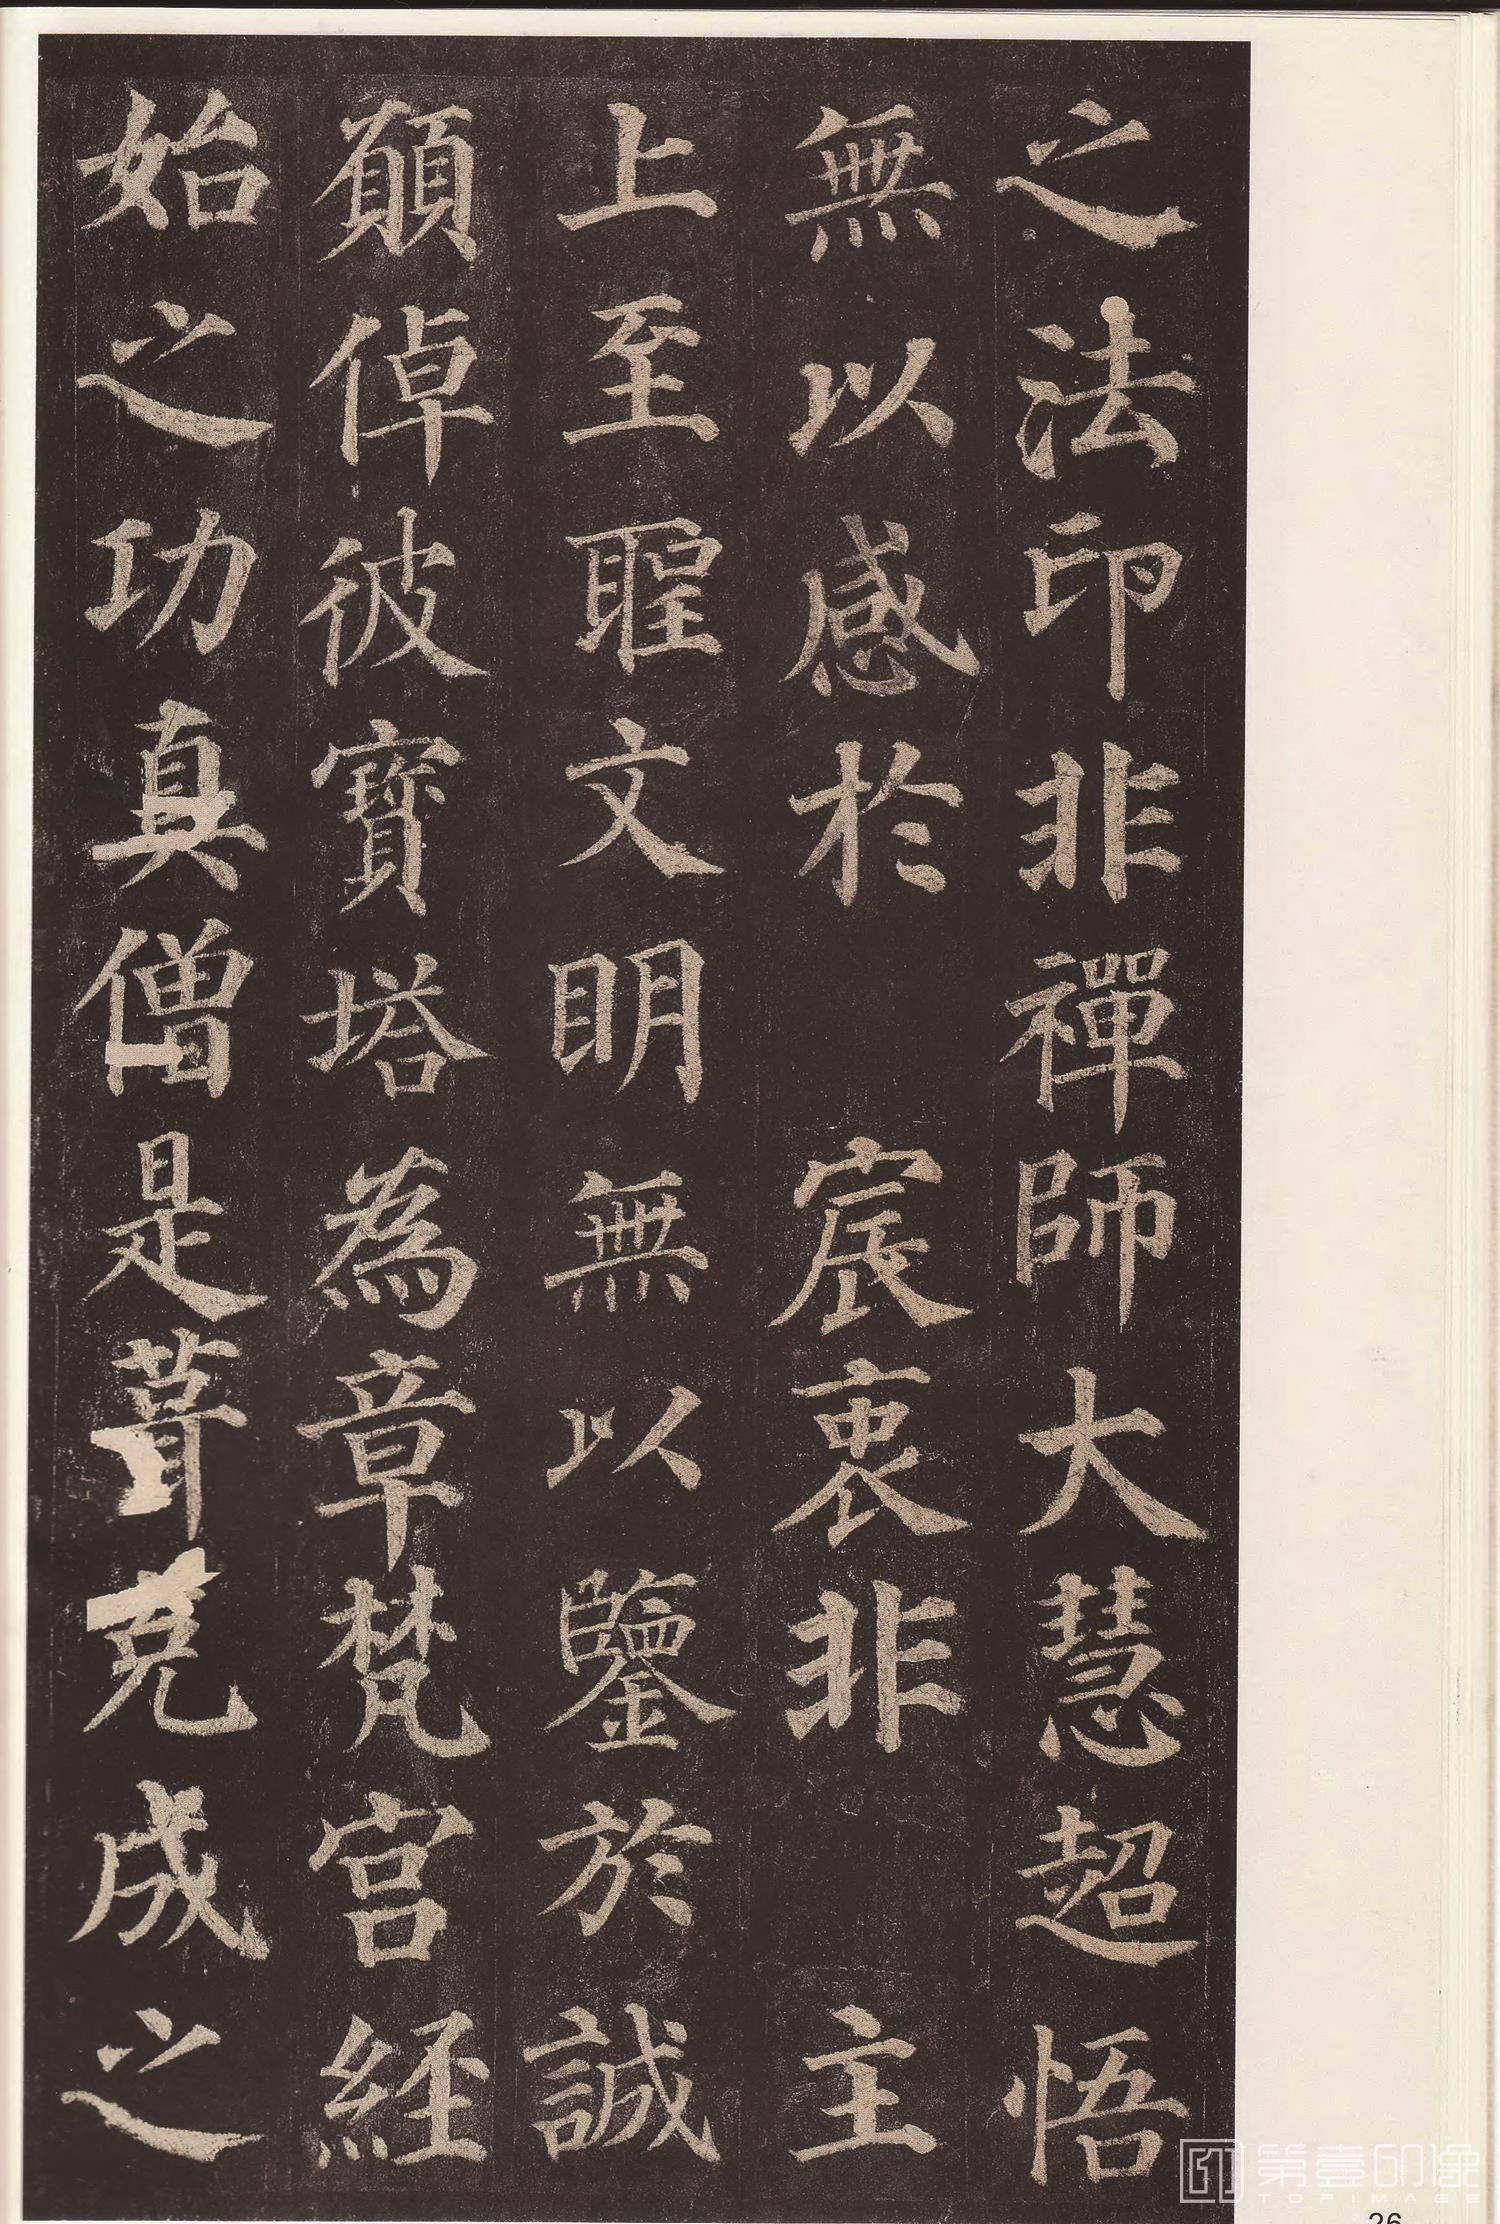 之法印非禪師大慧超悟
無以感於宸衷非主
上至聖文明無以鑒於誠
願倬彼寶塔為章梵宮経
始之功真僧是葺克成之
第壹印像
TOPIMAGE
26